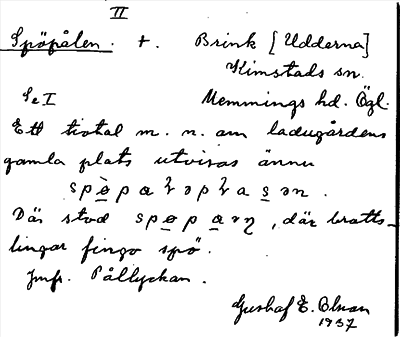 II
Spöpålen. t. Brink [Udderna]
Kimstads sn.
Se I Memmings hd. Ögl.
Ett tiotal m. n. om ladugårdens
gamla plats utvisas ännu
Där stod, där bratts-
lingar fingo spö.
Jmfr. Pållyckan.
Gustaf E. Olsson
1937